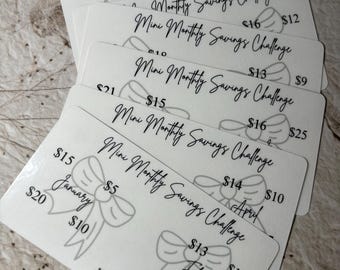 $16 $12
Mini Monthly Savings Challenge
$18 $13 $9
Mini Monthly Savings Challenge
$21 $15 $16 $25
Mini Monthly Savings Challenge
$14 $10
April
Mini Monthly Savings Challenge
$15 $5
January
$20 $10 $13